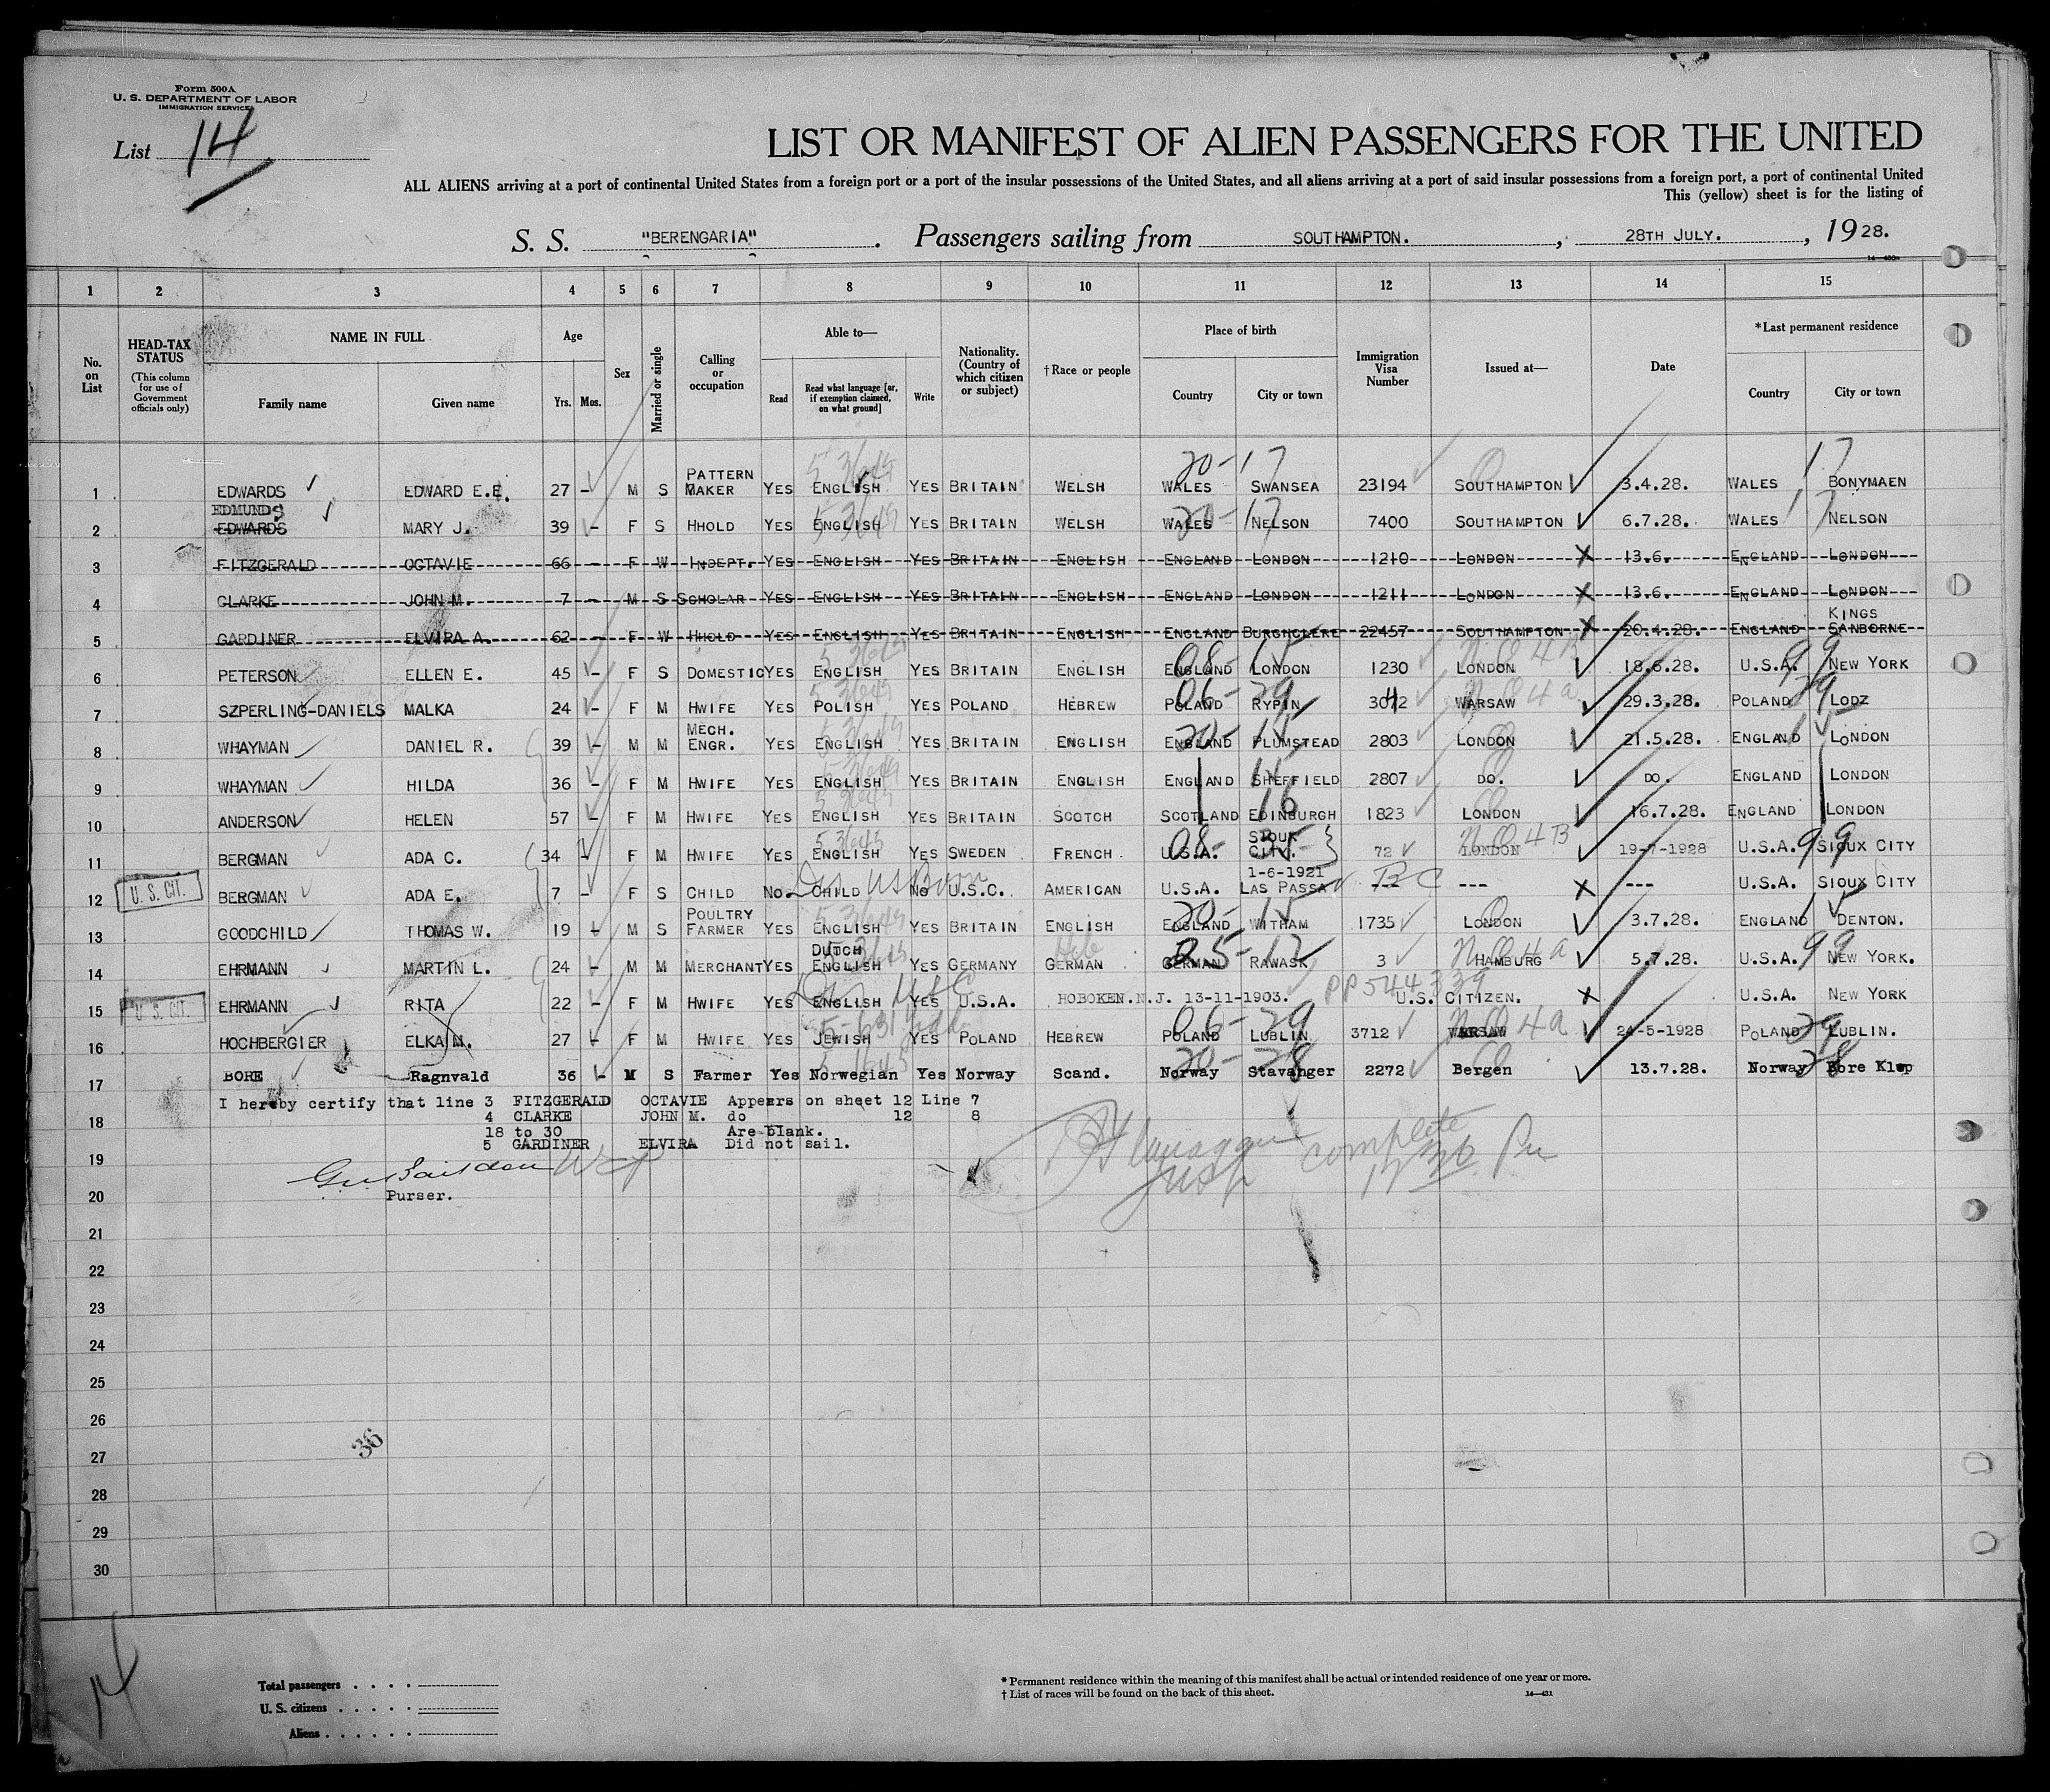 Form 500A
U. S. DEPARTMENT OF LABOR
IMMIGRATION SERVICE
List 14
LIST OR MANIFEST OF ALIEN PASSENGERS FOR THE UNITED
ALL ALIENS arriving at a port of continental United States from a foreign port or a port of the insular possessions of the United States, and all aliens arriving at a port of said insular possessions from a foreign port, a port of continental United
This (yellow) sheet is for the listing of
S. S. "BERENGARIA". Passengers sailing from SOUTHAMPTON., 28TH JULY., 1928.
1 2 3 4 5 6 7 8 9 10 11 12 13 14 15
No. on List
HEAD-TAX STATUS (This column for use of Government officials only)
NAME IN FULL Family name Given name
Age Yrs. Mos.
Sex
Married or single
Calling or occupation
Able to— Read Read what language [or, if exemption claimed, on what ground] Write
Nationality. (Country of which citizen or subject)
†Race or people
Place of birth Country City or town
Immigration Visa Number
Issued at—
Date
*Last permanent residence Country City or town
1 EDWARDS EDWARD E.E. 27 - M S PATTERN MAKER YES ENGLISH YES BRITAIN WELSH WALES SWANSEA 23194 SOUTHAMPTON 3.4.28. WALES BONYMAEN
2 EDMUNDS EDWARDS MARY J. 39 - F S HHOLD YES ENGLISH YES BRITAIN WELSH WALES NELSON 7400 SOUTHAMPTON 6.7.28. WALES NELSON
3 FITZGERALD OCTAVIE 66 - F W INDEPT. YES ENGLISH YES BRITAIN ENGLISH ENGLAND LONDON 1210 LONDON X 13.6. ENGLAND LONDON
4 CLARKE JOHN M. 7 - M S SCHOLAR YES ENGLISH YES BRITAIN ENGLISH ENGLAND LONDON 1211 LONDON X 13.6. ENGLAND LONDON
5 GARDINER ELVIRA A. 62 - F W HHOLD YES ENGLISH YES BRITAIN ENGLISH ENGLAND BURGHCLERE 22457 SOUTHAMPTON X 20.4.28. ENGLAND KINGS SANBORNE
6 PETERSON ELLEN E. 45 - F S DOMESTIC YES ENGLISH YES BRITAIN ENGLISH ENGLAND LONDON 1230 LONDON 18.6.28. U.S.A. NEW YORK
7 SZPERLING-DANIELS MALKA 24 - F M HWIFE YES POLISH YES POLAND HEBREW POLAND RYPIN WARSAW 29.3.28. POLAND LODZ
8 WHAYMAN DANIEL R. 39 - M M MECH. ENGR. YES ENGLISH YES BRITAIN ENGLISH ENGLAND PLUMSTEAD 2803 LONDON 21.5.28. ENGLAND LONDON
9 WHAYMAN HILDA 36 - F M HWIFE YES ENGLISH YES BRITAIN ENGLISH ENGLAND SHEFFIELD 2807 DO. DO. ENGLAND LONDON
10 ANDERSON HELEN 57 - F M HWIFE YES ENGLISH YES BRITAIN SCOTCH SCOTLAND EDINBURGH 1823 LONDON 16.7.28. ENGLAND LONDON
11 BERGMAN ADA C. 34 - F M HWIFE YES ENGLISH YES SWEDEN FRENCH U.S.A. SIOUX CITY. 72 LONDON 19-7-1928 U.S.A. SIOUX CITY
12 U. S. CIT. BERGMAN ADA E. 7 - F S CHILD NO CHILD NO U.S.C. AMERICAN U.S.A. 1-6-1921 LAS PASSA --- BC --- X --- U.S.A. SIOUX CITY
13 GOODCHILD THOMAS W. 19 - M S POULTRY FARMER YES ENGLISH YES BRITAIN ENGLISH ENGLAND WITHAM 1735 LONDON 3.7.28. ENGLAND DENTON.
14 EHRMANN MARTIN L. 24 - M M MERCHANT YES DUTCH ENGLISH YES GERMANY GERMAN GERMAN RAWASK 3 HAMBURG 5.7.28. U.S.A. NEW YORK.
15 U. S. CIT. EHRMANN RITA 22 - F M HWIFE YES ENGLISH YES U.S.A. HOBOKEN.N.J. 13-11-1903. PP544339 U.S. CITIZEN. X U.S.A. NEW YORK
16 HOCHBERGIER ELKA M. 27 - F M HWIFE YES JEWISH YES POLAND HEBREW POLAND LUBLIN 3712 WARSAW 24-5-1928 POLAND LUBLIN.
17 BORE Ragnvald 36 - M S Farmer Yes Norwegian Yes Norway Scand. Norway Stavanger 2272 Bergen 13.7.28. Norway Bore Klep
I hereby certify that line 3 FITZGERALD OCTAVIE Appears on sheet 12 Line 7
18 4 CLARKE JOHN M. do 12 8
18 to 30 Are blank.
5 GARDINER ELVIRA Did not sail.
19 complete
20 Purser.
21
22
23
24
25
26
27
28
29
30
36
14
Total passengers . . . .
U. S. citizens . . . . .
Aliens . . . . . .
* Permanent residence within the meaning of this manifest shall be actual or intended residence of one year or more.
† List of races will be found on the back of this sheet.
14—431